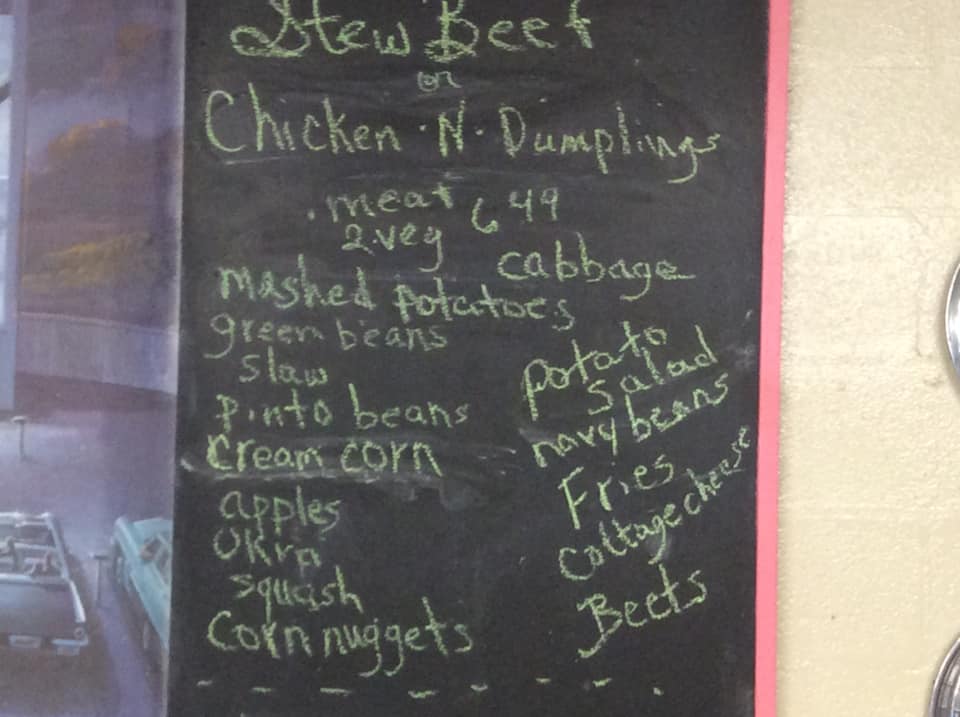 Stew Beef
or
Chicken 'N' Dumplings
. meat 6 49
2.veg
cabbage
mashed potatoes
green beans
slaw
pinto beans
cream corn
apples
Okra
squash
Corn nuggets
potato
salad
navy beans
Fries
cottage cheese
Beets